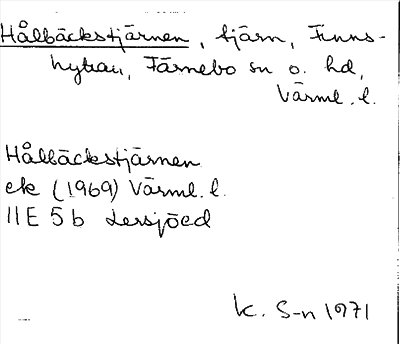 Hålbäckstjärnen, tjärn, Finns-
hyttan, Färnebo sn o. hd,
Värml. l.
Hålbäckstjärnen
ek (1969) Värml. l.
11E 5b Lersjöed
K. S-n 1971